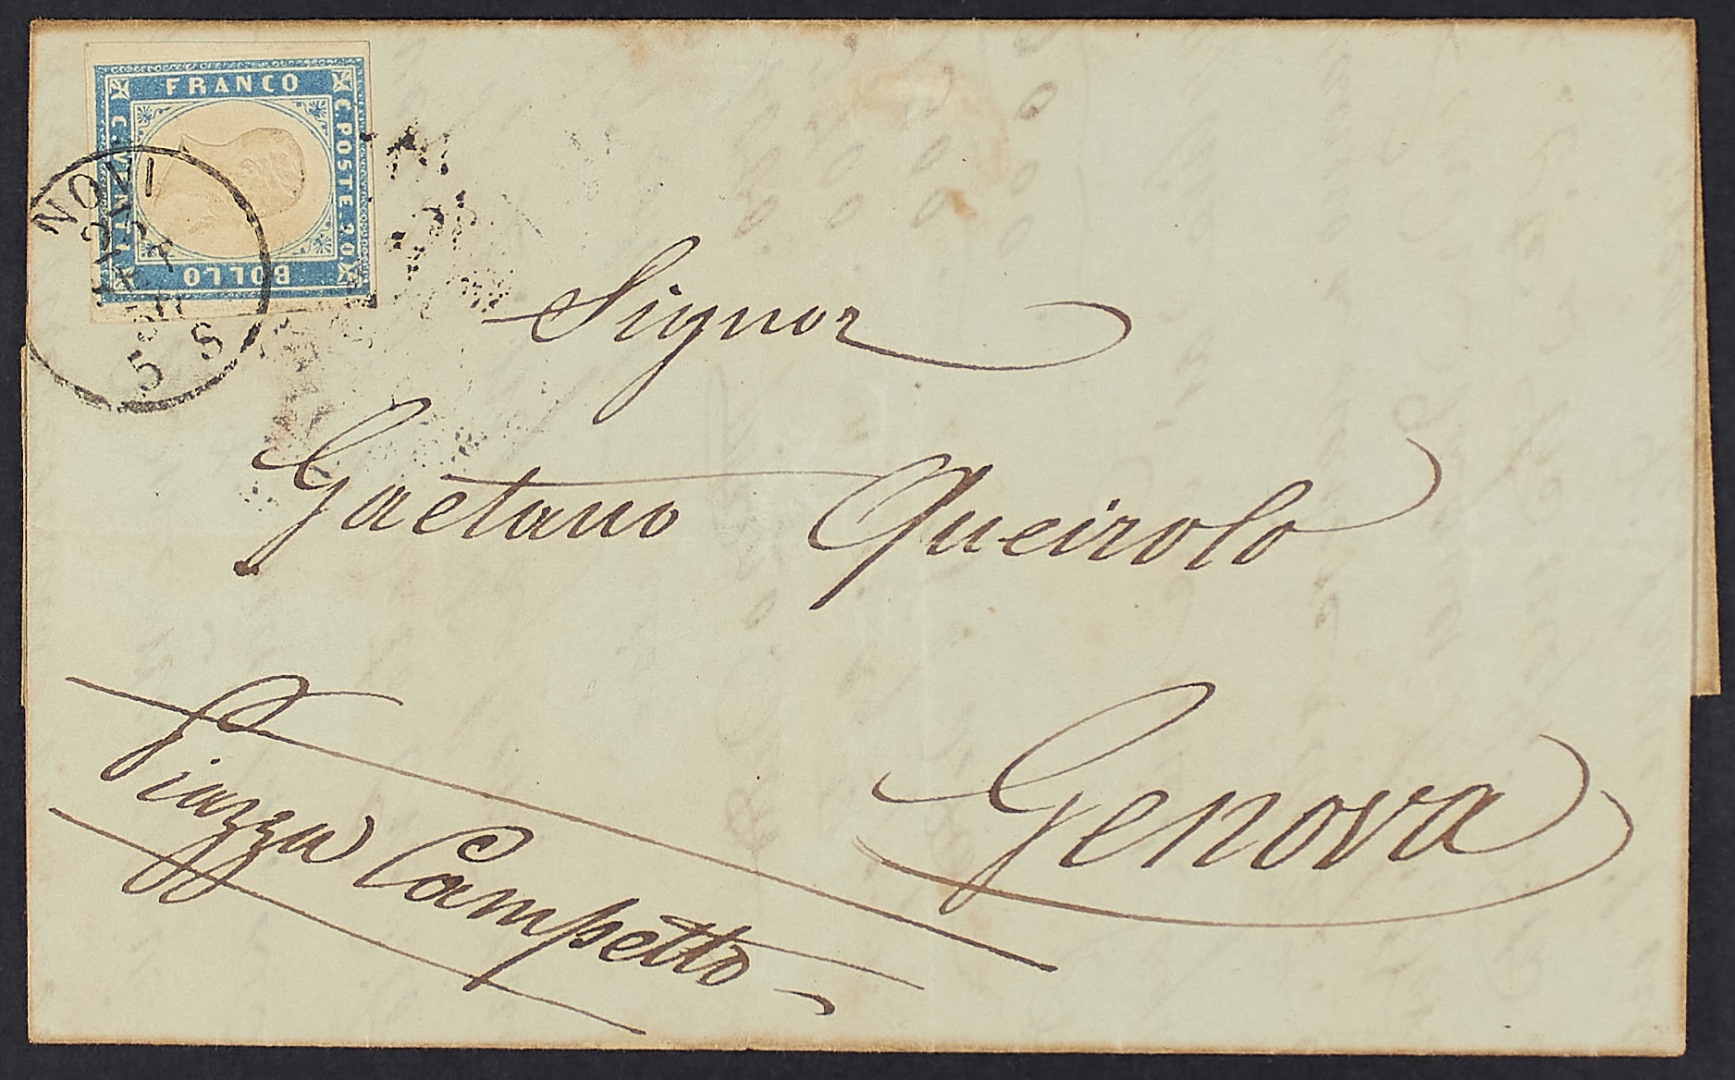 FRANCO
C. POSTE. 20
BOLLO
C. VENTI
NOVI
22
5 S
Signor
Gaetano Queirolo
Genova
Piazza Campetto